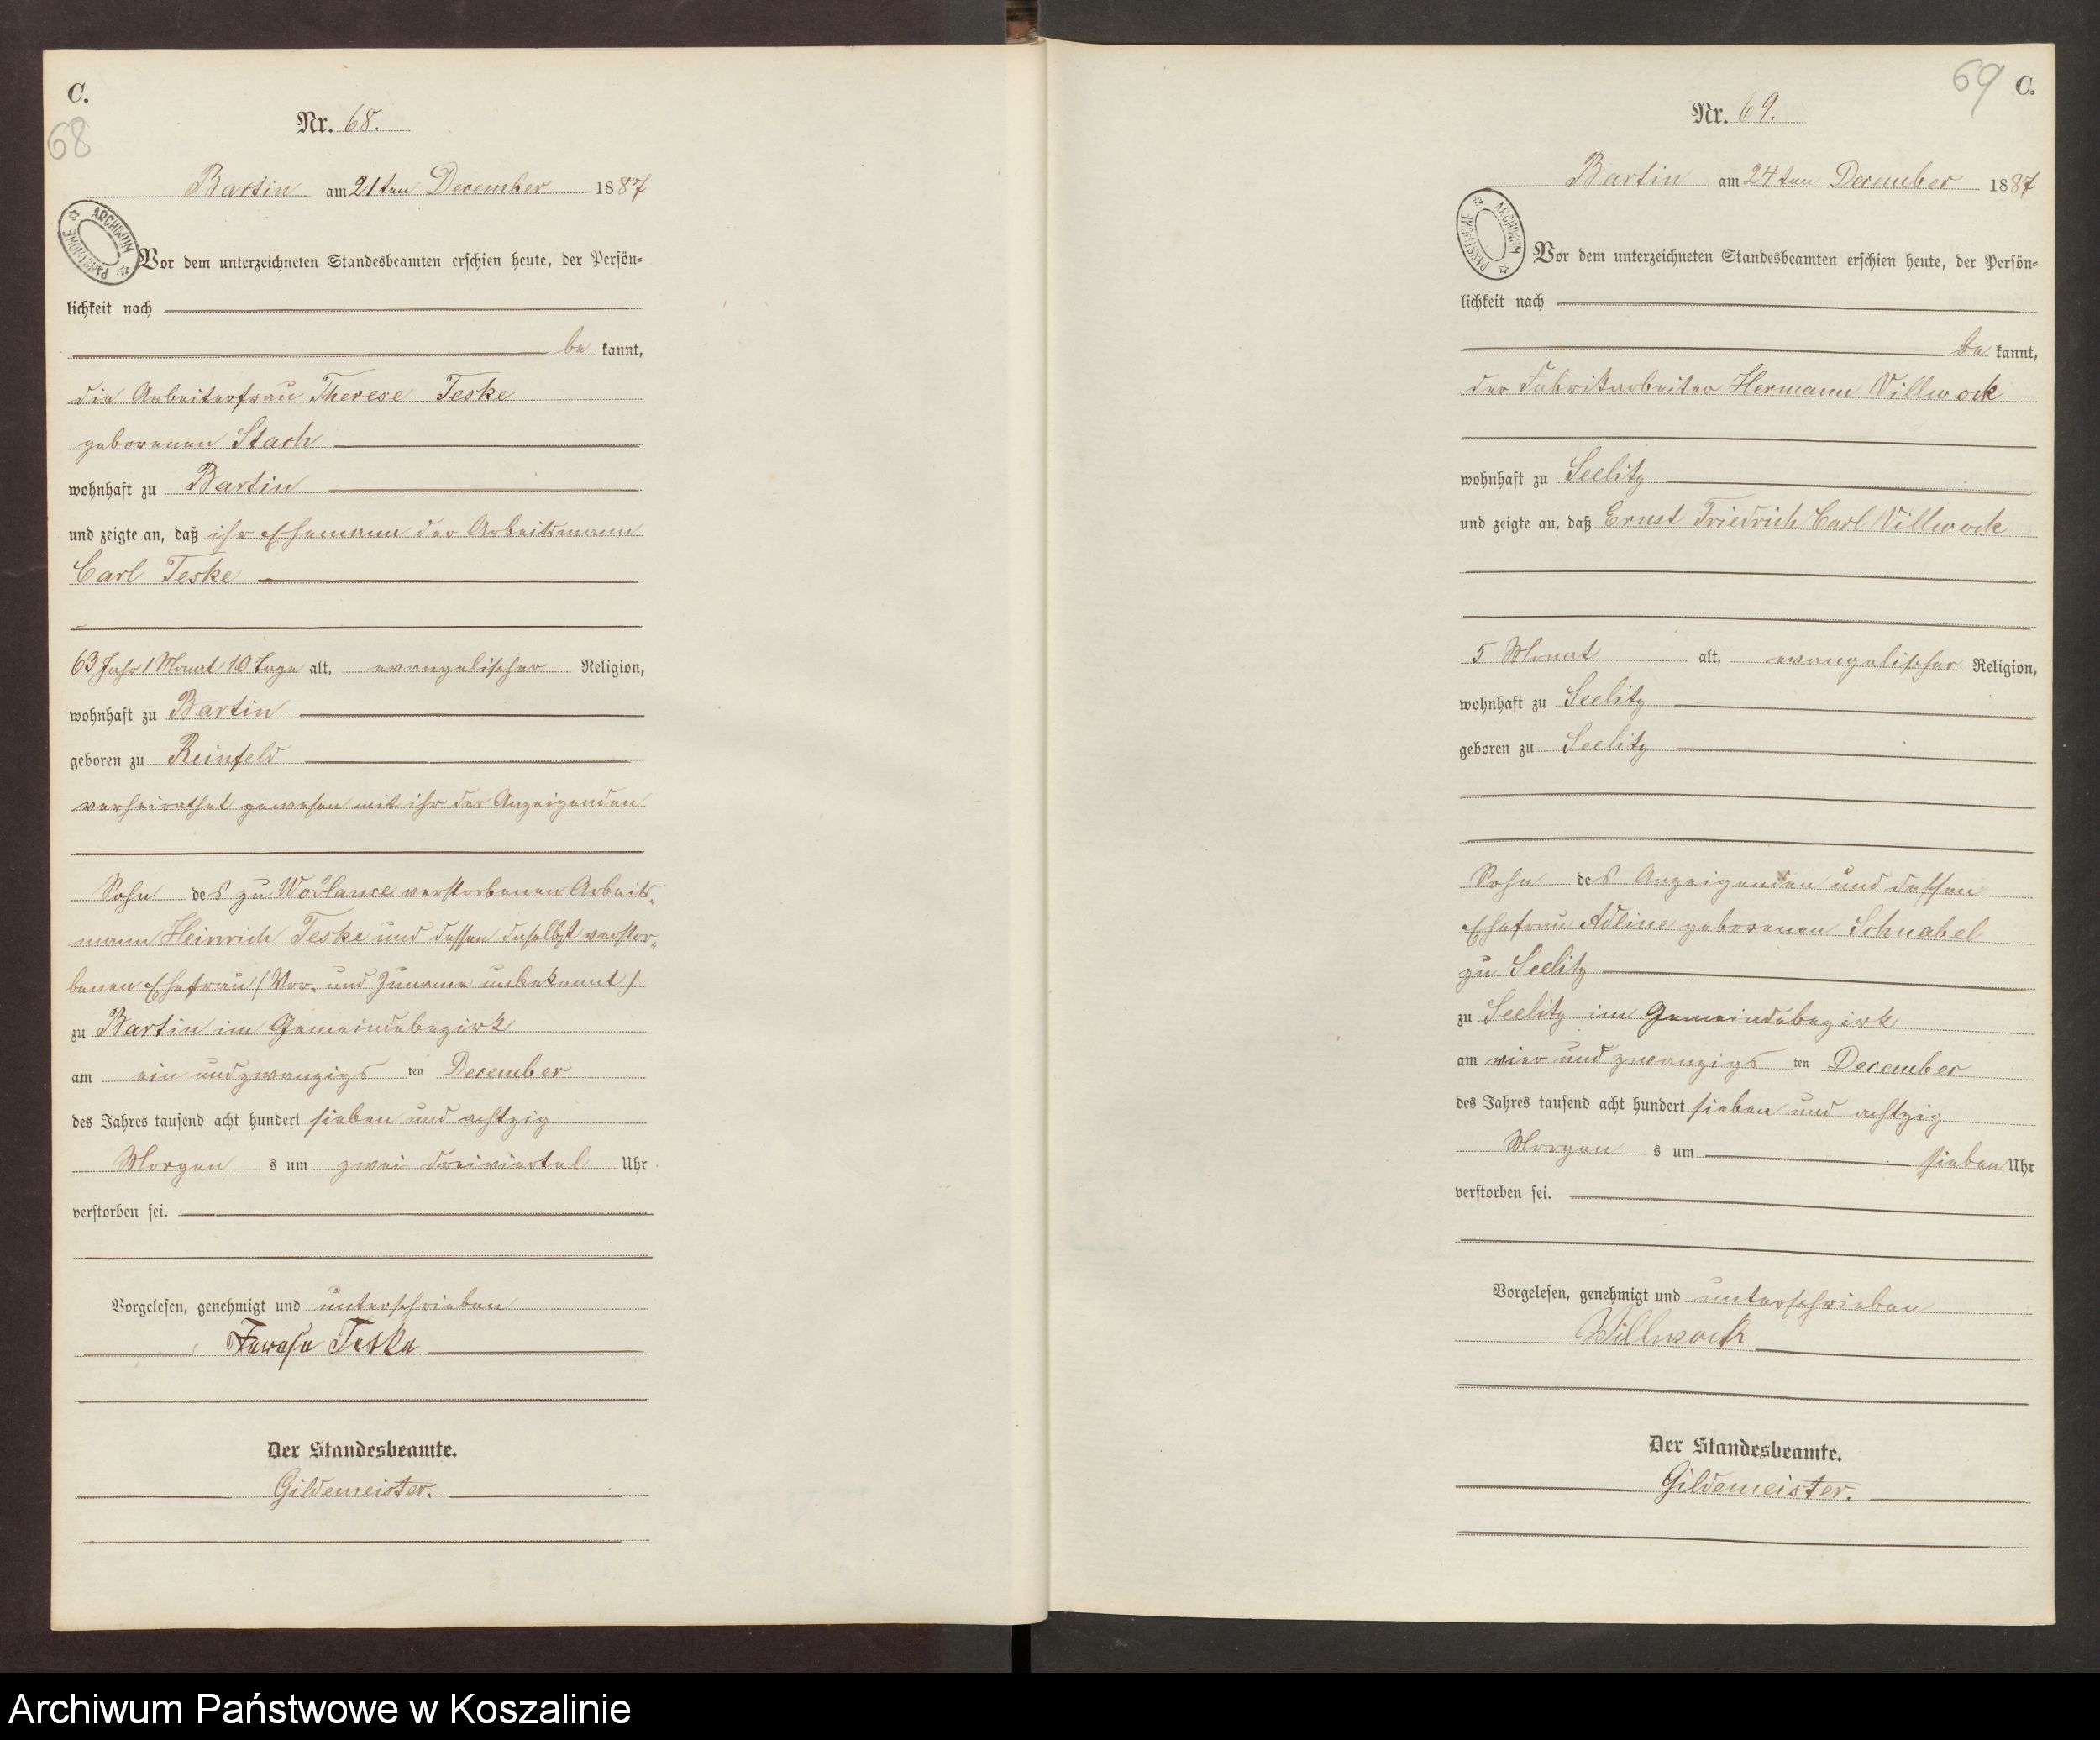 C.
68
Nr. 68.
Bartin am 21ten December 1887
ARCHIWUM PAŃSTWOWE
Vor dem unterzeichneten Standesbeamten erschien heute, der Persön-
lichkeit nach
be kannt,
die Arbeiterfrau Therese Teske
geborenen Stach
wohnhaft zu Bartin
und zeigte an, daß ihr Ehemann der Arbeitsmann
Carl Teske
63 Jahr 1 Monat 10 Tage alt, evangelischer Religion,
wohnhaft zu Bartin
geboren zu Reinfeld
verheirathet gewesen mit ihr der Anzeigenden
Sohn des zu verstorbenen Arbeits-
mann Heinrich Teske und dessen daselbst verstor-
benen Ehefrau (Vor- und Zuname unbekannt)
zu Bartin im Gemeindebezirk
am ein und zwanzigs ten December
des Jahres tausend acht hundert sieben und achtzig
Morgen s um zwei dreiviertel Uhr
verstorben sei.
Vorgelesen, genehmigt und unterschrieben
Terese Teske
Der Standesbeamte.
Gildemeister.
69 C.
Nr. 69.
Bartin am 24ten December 1887
ARCHIWUM PAŃSTWOWE
Vor dem unterzeichneten Standesbeamten erschien heute, der Persön-
lichkeit nach
be kannt,
der Fabrikarbeiter Hermann Villwock
wohnhaft zu Seelitz
und zeigte an, daß Ernst Friedrich Carl Villwock
5 Monat alt, evangelischer Religion,
wohnhaft zu Seelitz
geboren zu Seelitz
Sohn des Anzeigenden und dessen
Ehefrau Adline geborenen Schnabel
zu Seelitz
zu Seelitz im Gemeindebezirk
am vier und zwanzigs ten December
des Jahres tausend acht hundert sieben und achtzig
Morgen s um sieben Uhr
verstorben sei.
Vorgelesen, genehmigt und unterschrieben
Willwock
Der Standesbeamte.
Gildemeister.
Archiwum Państwowe w Koszalinie